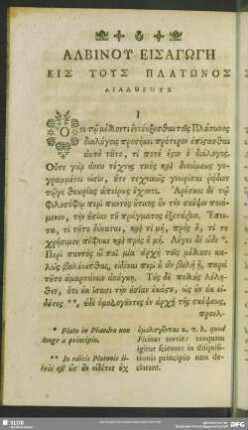 ΑΛΒΙΝΟΥ ΕΙΣΑΓΩΓΗ
ΕΙΣ ΤΟΥΣ ΠΛΑΤΩΝΟΣ
ΔΙΑΛΟΓΟΥΣ
I
Ὅτι τῷ μέλλοντι ἐντεύξεσθαι τοῖς Πλάτωνος
διαλόγοις προσήκει πρότερον ἐπίστασθαι
αὐτὸ τοῦτο, τί ποτέ ἐστιν ὁ διάλογος.
Οὔτε γὰρ ἄνευ τέχνης τινὸς καὶ δυνάμεως γε-
γραμμένοι εἰσὶν, οὔτε τεχνικῶς γνωρίσαι ῥᾴδιον
τῷ γε θεωρίας ἀπείρως ἔχοντι. Ἀρέσκει δὲ τῷ
Φιλοσόφῳ περὶ παντὸς οὑτινοσοῦν τὴν σκέψιν ποιού-
μενον, τὴν οὐσίαν τοῦ πράγματος ἐξετάζειν. Ἔπει-
τα, τί τοῦτο δύναται, καὶ τί μὴ, πρὸς ὅ, τι τε
χρήσιμον πέφυκε καὶ πρὸς ὃ μή. Λέγει δὲ ὧδε *.
Περὶ παντὸς ὦ παῖ μία ἀρχὴ τοῖς μέλλουσι κα-
λῶς βουλεύεσθαι, εἰδέναι περὶ οὗ ἂν βουλὴ ᾖ, παντὸς
ἁμαρτάνειν ἀνάγκη. Τοὺς δὲ πολλοὺς λέλη-
θεν, ὅτι οὐκ ἴσασι τὴν οὐσίαν ἑκάστου, ὡς οὖν οὐκ
εἰδότες **, οὐδὲ ὁμολογοῦντες ἐν ἀρχῇ τῆς σκέψεως,
προελ-
* Plato in Phaedro non
longe a principio.
** In editis Platonis li-
bris
ὁμολογοῦνται κ. τ. λ. quod
Ficinus vertit:
igitur scientes in disputa-
tionis principio non de-
clarant.